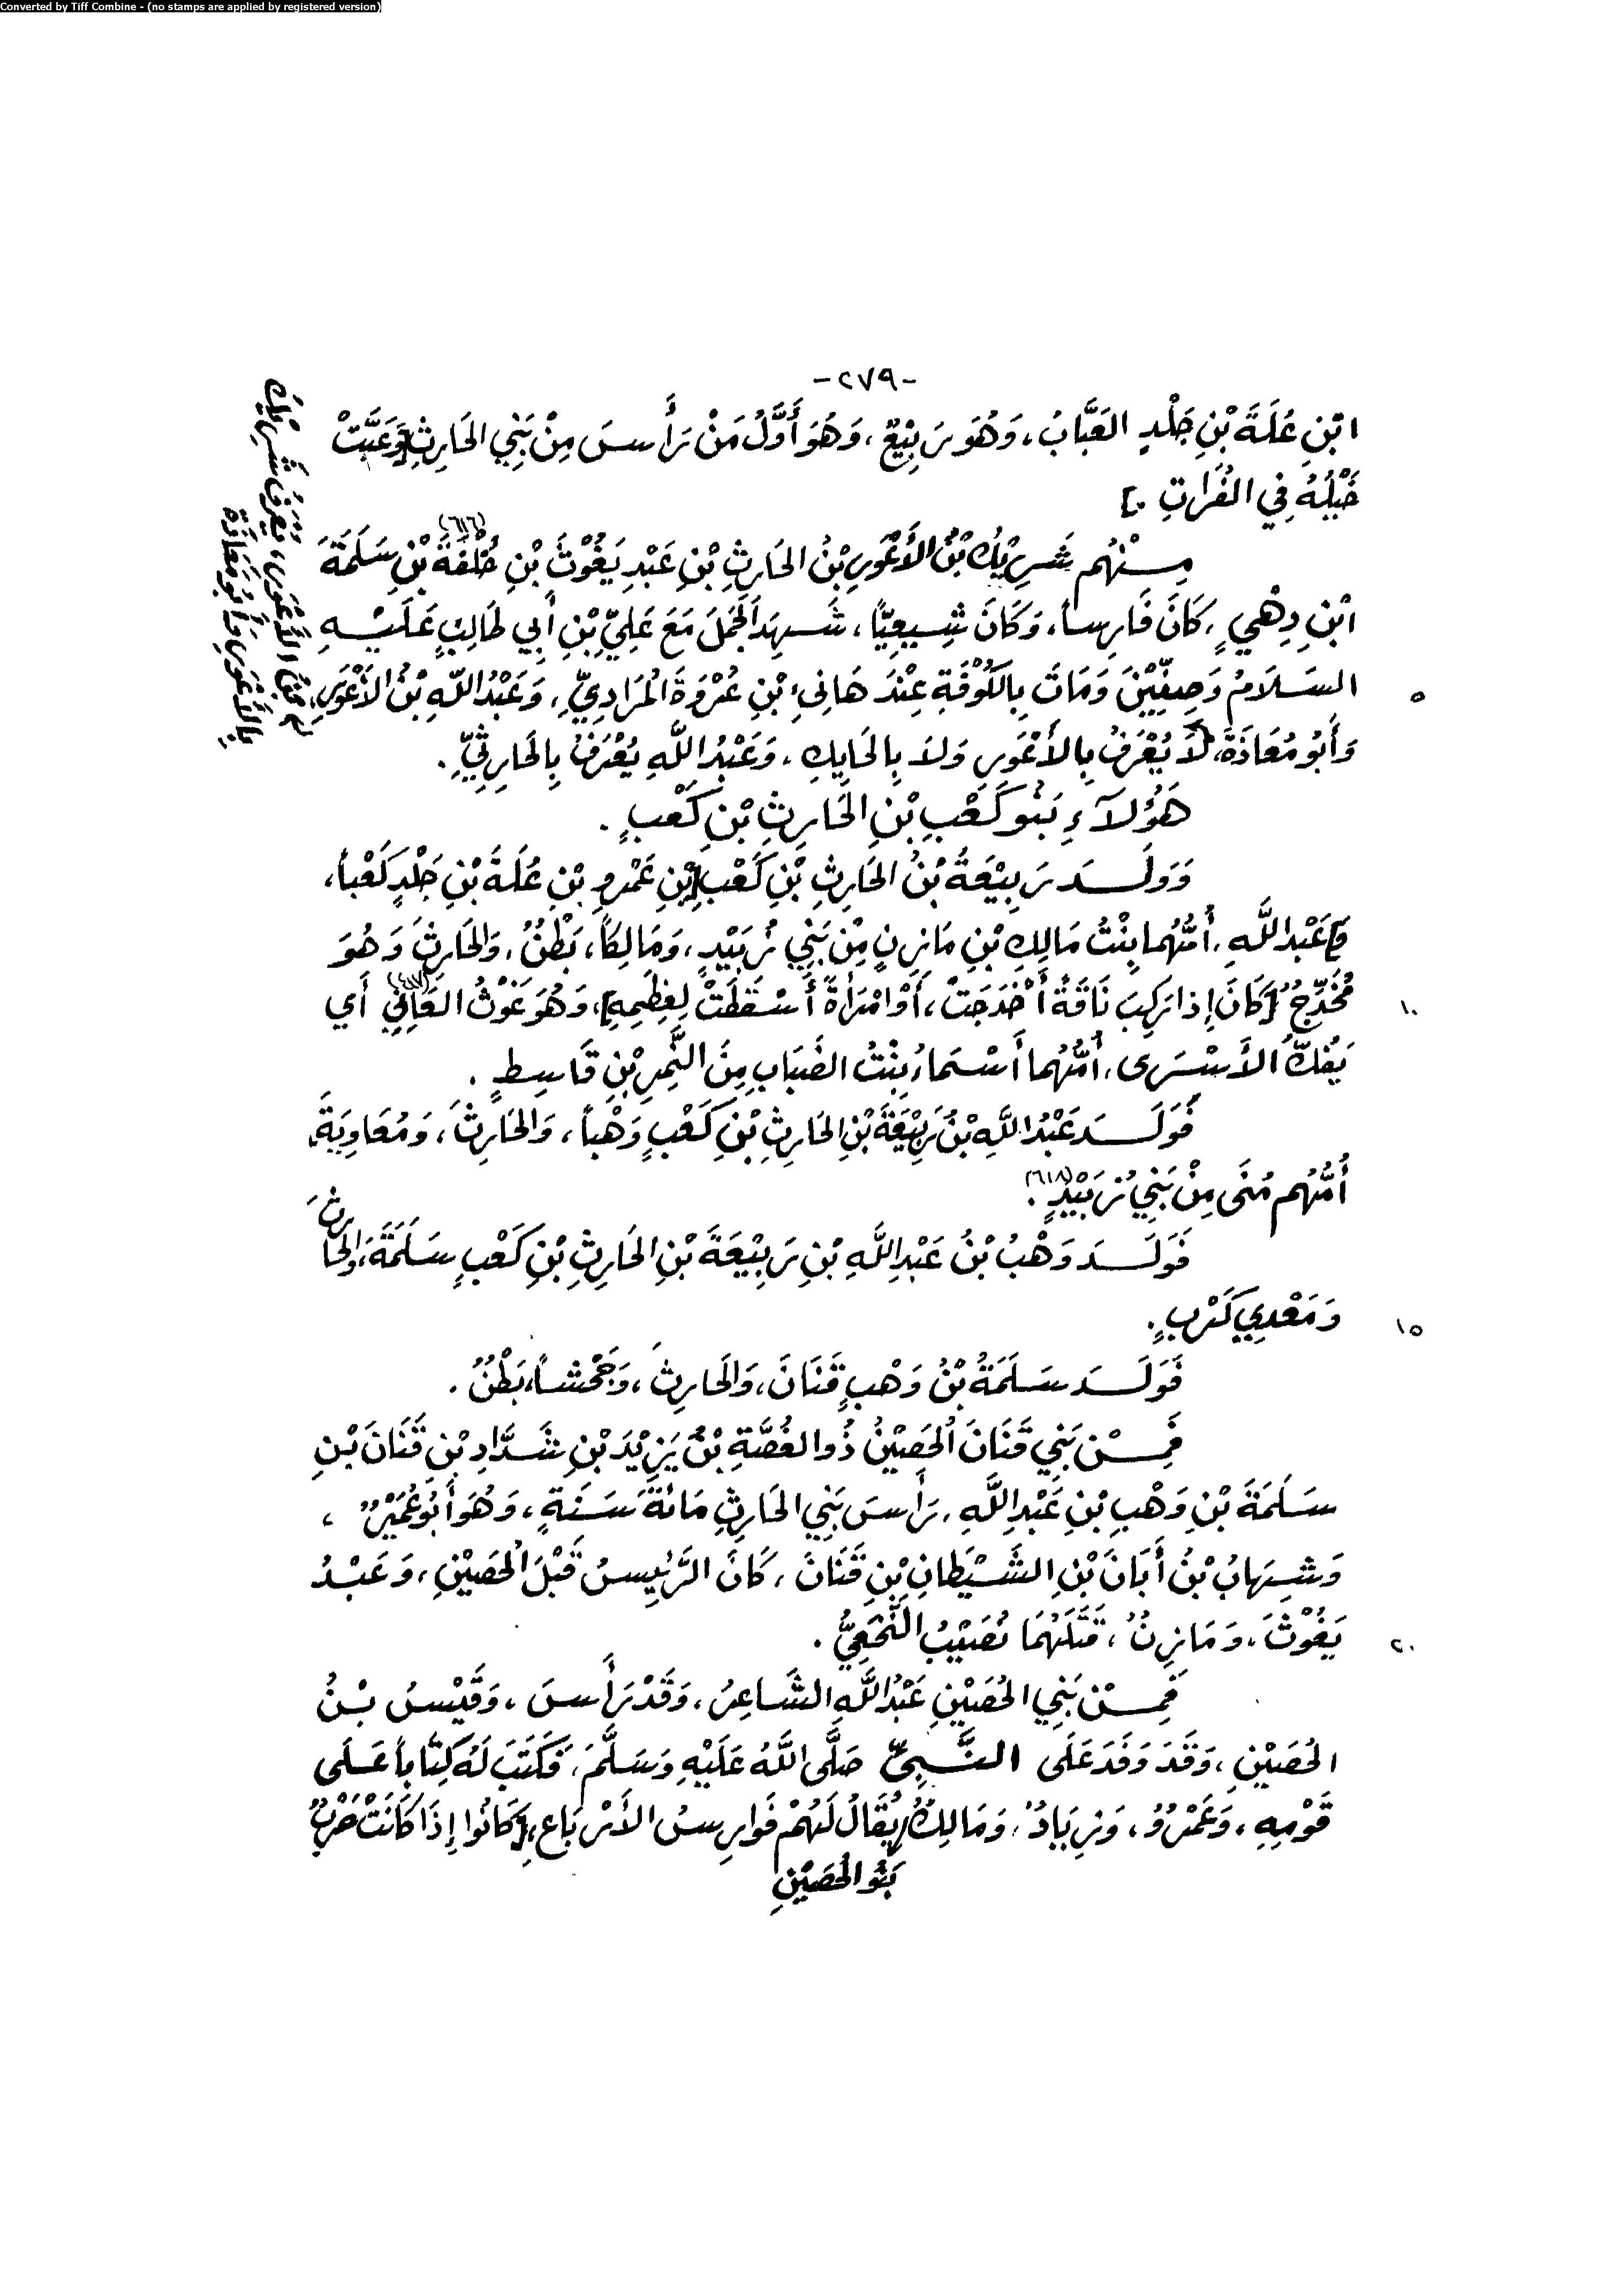 Converted by Tiff Combine - (no stamps are applied by registered version)
-٢٧٩-
ابْنِ عُلَةَ بْنِ جَلْدٍ العَبَّابُ، وَهُوَ رَبِيْعٌ، وَهُوَ أَوَّلُ مَنْ رَأَسَ مِنْ بَنِي الحَارِثِ [وَعَبَّتْ
خَيْلُهُ فِي الفُرَاتِ.]
مِنْهُم شَرِيْكُ بْنُ الأَعْوَرِ بْنُ الحَارِثِ بْنِ عَبْدِ يَغُوْثَ بْنِ خُلْفَةَ (٦١٦) بْنِ سَلَمَةَ
ابْنِ دِهْيٍ، كَانَ فَارِساً، وَكَانَ شِيعِيّاً، شَهِدَ الجَمَلَ مَعَ عَلِيِّ بْنِ أَبِي طَالِبٍ عَلَيْهِ
السَلَامُ وَصِفِّيْنَ وَمَاتَ بِالكُوْفَةِ عِنْدَ هَانِئِ بْنِ عُرْوَةَ المُرَادِيِّ، وَعَبْدُ اللهِ بْنُ الأَعْوَرِ،
٥
وَأَبُو مُعَاذَةَ، لَا يُعْرَفُ بِالأَعْوَرِ وَلَا بِالحَايِكِ، وَعَبْدُ اللَّهِ يُعْرَفُ بِالحَارِثِيِّ.
هَؤُلَآءِ بَنُو كَعْبِ بْنِ الحَارِثِ بْنِ كَعْبٍ.
وَوَلَدَ رَبِيْعَةُ بْنُ الحَارِثِ بْنِ كَعْبِ [بْنِ عَمْرِو بْنِ عُلَةَ بْنِ جَلْدٍ] كَعْباً،
وَعَبْدَ اللَّهِ، أُمُّهُما بِنْتُ مَالِكِ بْنِ مَازِنٍ مِنْ بَنِي زُبَيْدٍ، وَمَالِكاً، بَطْنٌ، وَالحَارِثَ وَهُوَ
مُخَدِّجٌ [كَانَ إِذَا رَكِبَ نَاقَةً أَخْدَجَتْ، أَوْ امْرَأَةً أَسْقَطَتْ لِعِظَمِهِ]، وَهُوَ غَوْثُ العَانِي (٦١٧) أَي
١٠
يَفُكُّ الأَسْرَى، أُمُّهُما أَسْمَاءُ بِنْتُ الضَبَابِ مِنَ النَّمِرِ بْنِ قَاسِطٍ.
فَوَلَدَ عَبْدُ اللَّهِ بْنُ رَبِيْعَةَ بْنِ الحَارِثِ بْنِ كَعْبٍ وَهْباً، وَالحَارِثَ، وَمُعَاوِيَةَ،
أُمُّهُم مُنَى مِنْ بَنِي زُبَيْدٍ (٦١٨).
فَوَلَدَ وَهْبُ بْنُ عَبْدِ اللَّهِ بْنِ رَبِيْعَةَ بْنِ الحَارِثِ بْنِ كَعْبٍ سَلَمَةَ، وَالحَارِثَ
وَمَعْدِي كَرْبٍ.
١٥
فَوَلَدَ سَلَمَةُ بْنُ وَهْبٍ قَنَانَ، وَالحَارِثَ، وَجَحْشاً، بَطْنٌ.
فَمِنْ بَنِي قَنَانَ الحُصَيْنُ ذُو الغُصَّةِ بْنُ يَزِيْدَ بْنِ شَدَّادِ بْنِ قَنَانَ بْنِ
سَلَمَةَ بْنِ وَهْبِ بْنِ عَبْدِ اللَّهِ، رَأَسَ بَنِي الحَارِثِ مَائَةَ سَنَةٍ، وَهُوَ أَبُو عُمَيْرٌ،
وَشِهَابُ بْنُ أَبَانَ بْنِ الشَيْطَانِ بْنِ قَنَانَ، كَانَ الرَّئِيسُ قَبْلَ الحُصَيْنِ، وَعَبْدُ
يَغُوْثَ، وَمَازِنٌ، قَتَلَهُمَا نُصَيْبُ النَّخَعِيُّ.
٢٠
فَمِنْ بَنِي الحُصَيْنِ عَبْدُ اللَّهِ الشَّاعِرُ، وَقَدْ رَأَسَ، وَقَيْسُ بْنُ
الحُصَيْنِ، وَقَدْ وَفَدَ عَلَى النَّبِيِّ صَلَّى اللَّهُ عَلَيْهِ وَسَلَّمَ، فَكَتَبَ لَهُ كِتَاباً عَلَى
قَوْمِهِ، وَعَمْرٌو، وَزِيَادٌ، وَمَالِكٌ، يُقَالُ لَهُمْ فَوَارِسُ الأَرْبَاعِ، [كَانُوا إِذَا كَانَتْ حَرْبٌ
بَنُو الحُصَيْنِ
بْنُ الأَعْوَرِ، يُعْرَفُ شَرِيْكُ
بِالأَعْوَرِ وَأَبُو مُعَاذَةَ